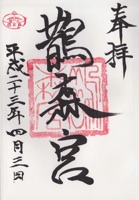 奉拝
鵲森宮
平成二十三年四月三日